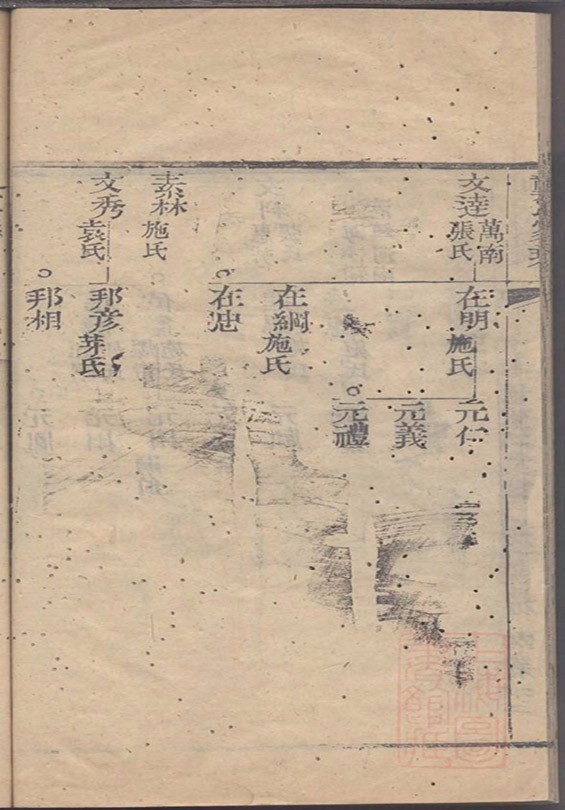 文達
萬南
張氏
在明
施氏
元仁
元義
元禮
在綱
施氏
在忠
素林
施氏
文秀
袁氏
邦彥
茅氏
邦相